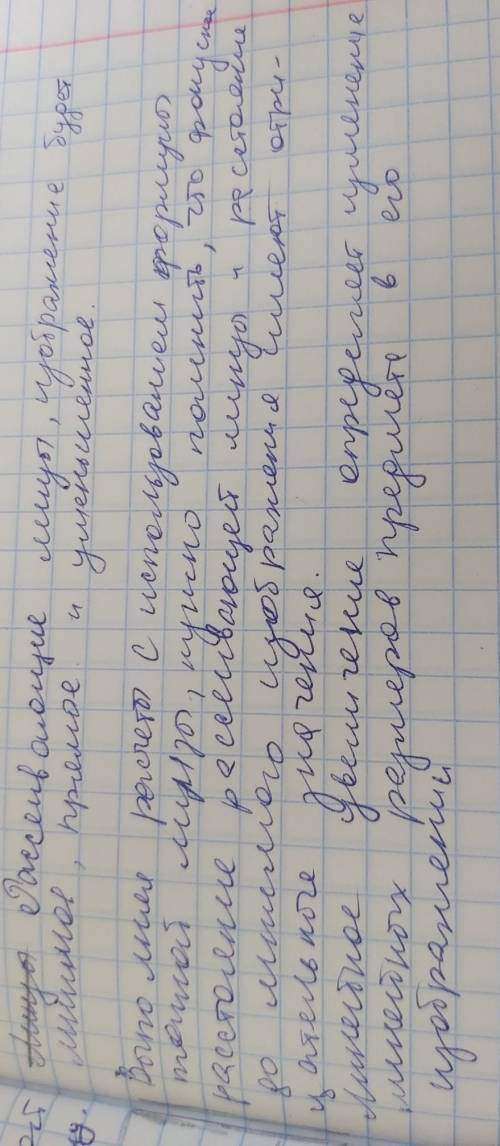 Рассеивающие линзы, изображение будет
мнимое, прямое и уменьшенное.
Выполняя расчеты с использованием формулы
тонкой линзы, нужно помнить, что фокусное
расстояние рассеивающей линзы и расстояние
до мнимого изображения имеют отри-
цательные значения.
Линейное увеличение определяет изменение
линейных размеров предмета в его
изображении